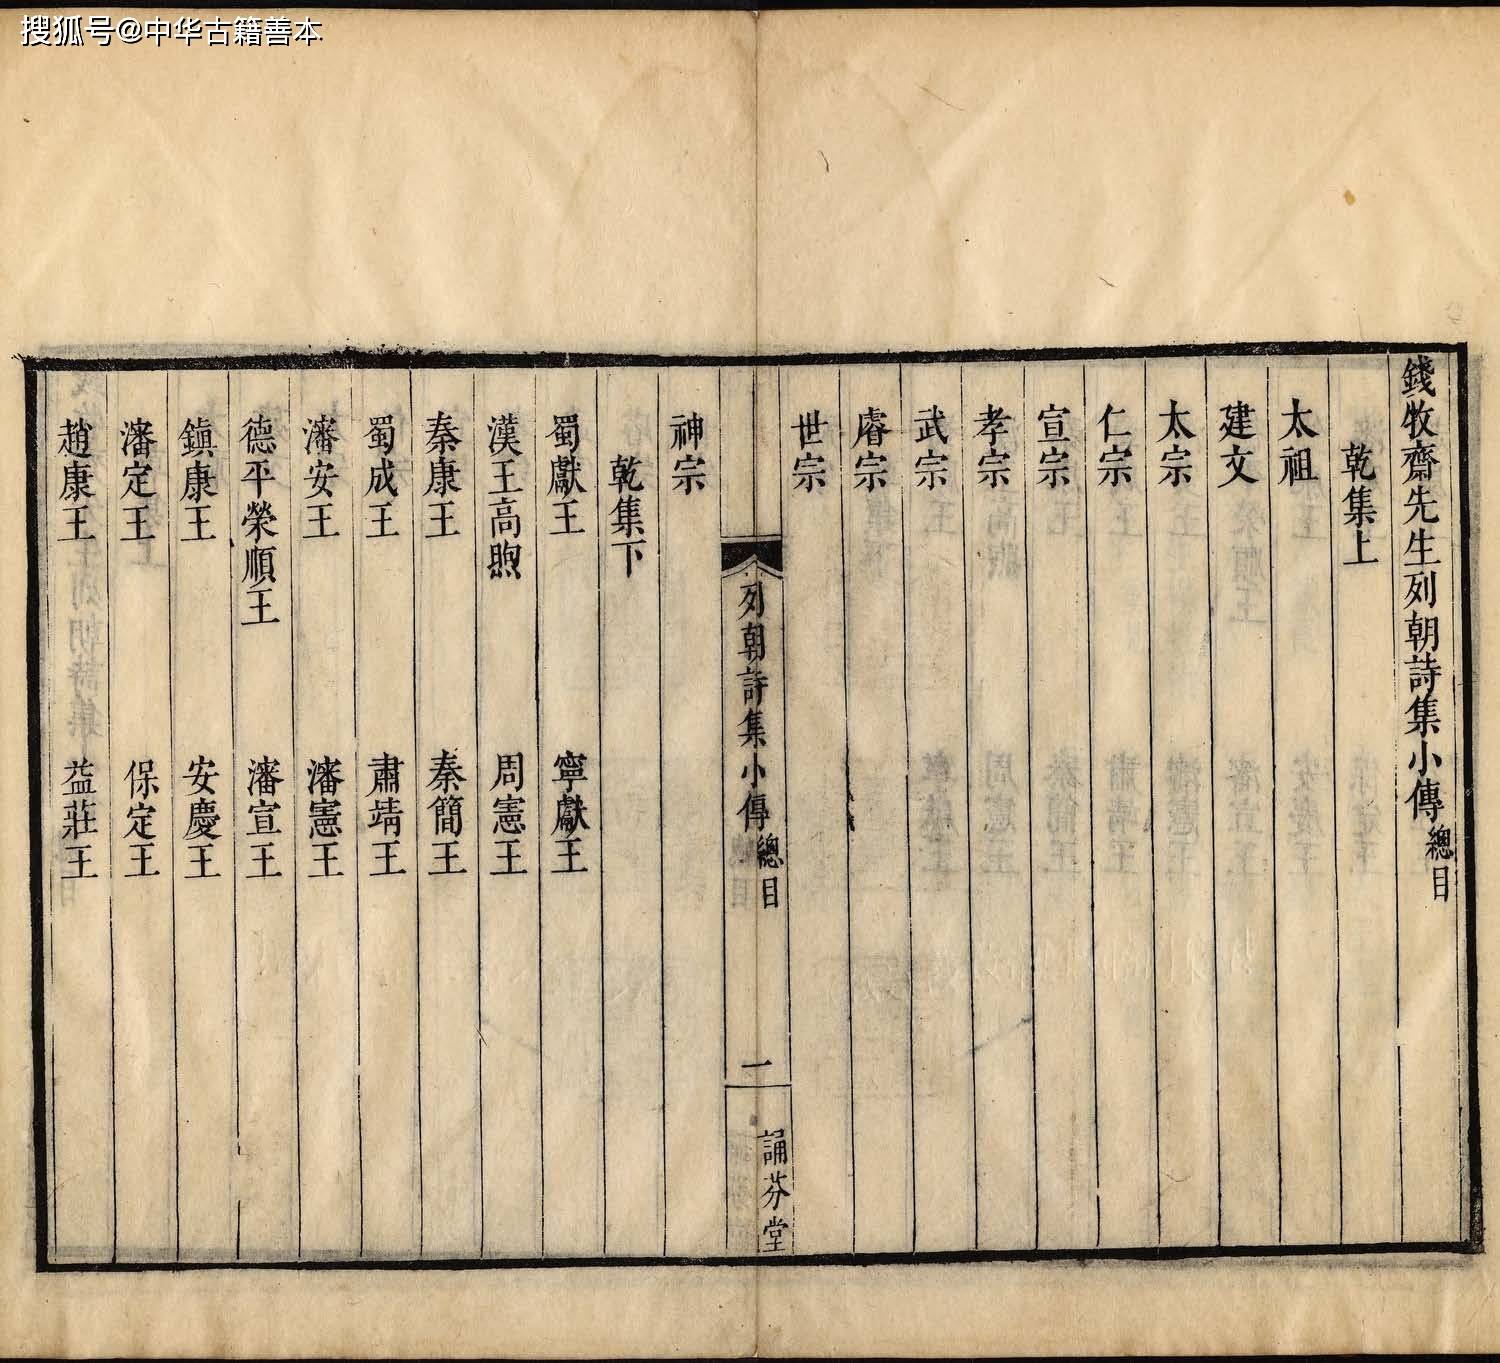 搜狐号@中华古籍善本
錢牧齋先生列朝詩集小傳總目
乾集上
太祖
建文
太宗
仁宗
宣宗
孝宗
武宗
睿宗
世宗
列朝詩集小傳總目
一
誦芬堂
神宗
乾集下
蜀獻王 寧獻王
漢王高煦 周憲王
秦康王 秦簡王
蜀成王 肅靖王
瀋安王 瀋憲王
德平榮順王 瀋宣王
鎮康王 安慶王
瀋定王 保定王
趙康王 益莊王